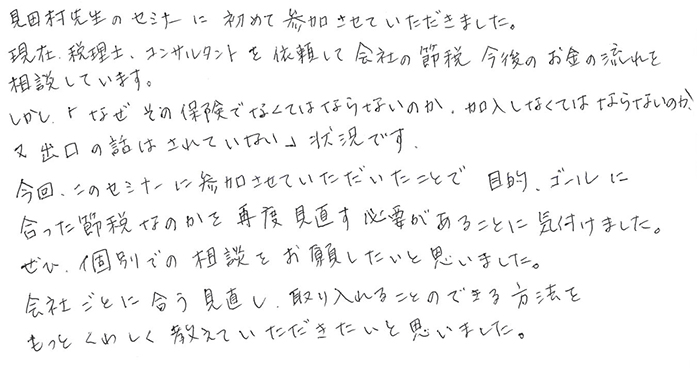 見田村先生のセミナーに初めて参加させていただきました。
現在、税理士、コンサルタントを依頼して会社の節税 今後のお金の流れを
相談しています。
しかし、「なぜその保険でなくてはならないのか、加入しなくてはならないのか、
又出口の話はされていない」状況です。
今回、このセミナーに参加させていただいたことで 目的、ゴールに
合った節税なのかを再度見直す必要があることに気付けました。
ぜひ、個別での相談をお願したいと思いました。
会社ごとに合う見直し、取り入れることのできる方法を
もっとくわしく教えていただきたいと思いました。